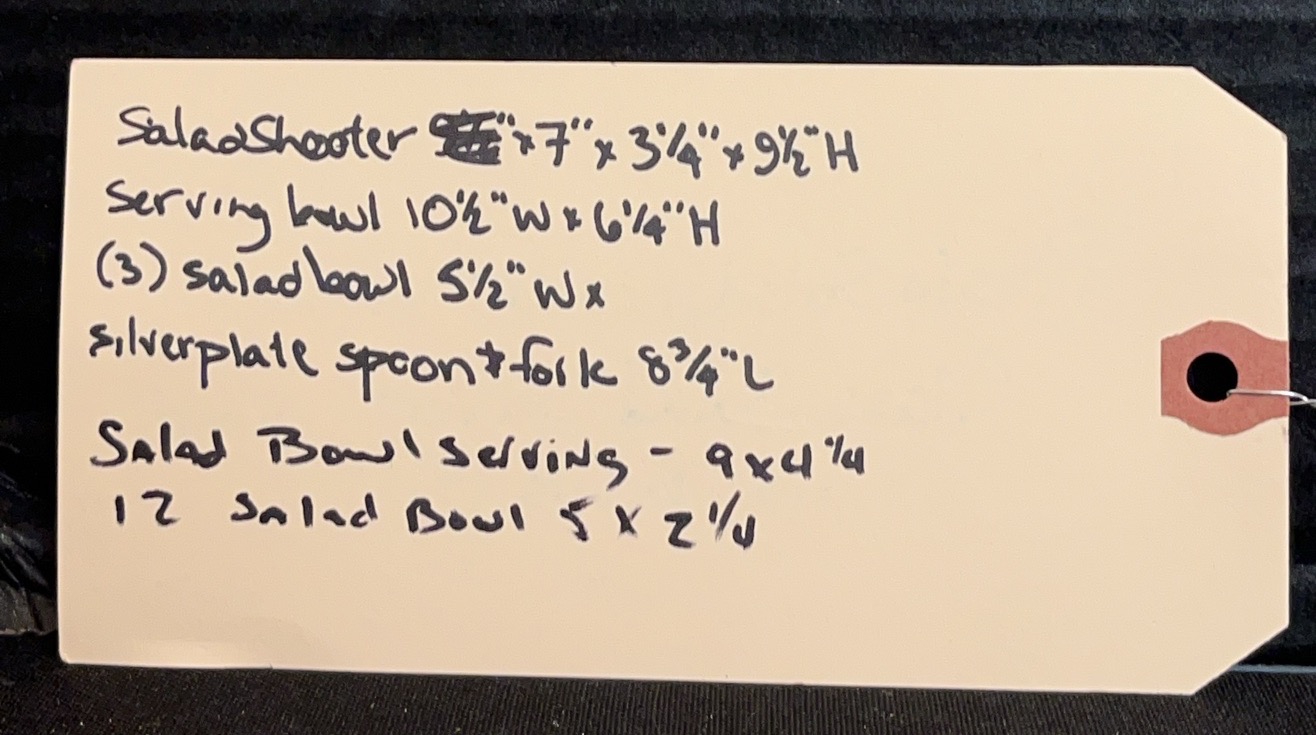 SaladShooter " x 7" x 3 1/4" x 9 1/2" H
Serving bowl 10 1/2" W x 6 1/4" H
(3) salad bowl 5 1/2" W x
silverplate spoon + fork 8 3/4" L
Salad Bowl Serving - 9 x 4 1/4
12 Salad Bowl 5 x 2 1/4